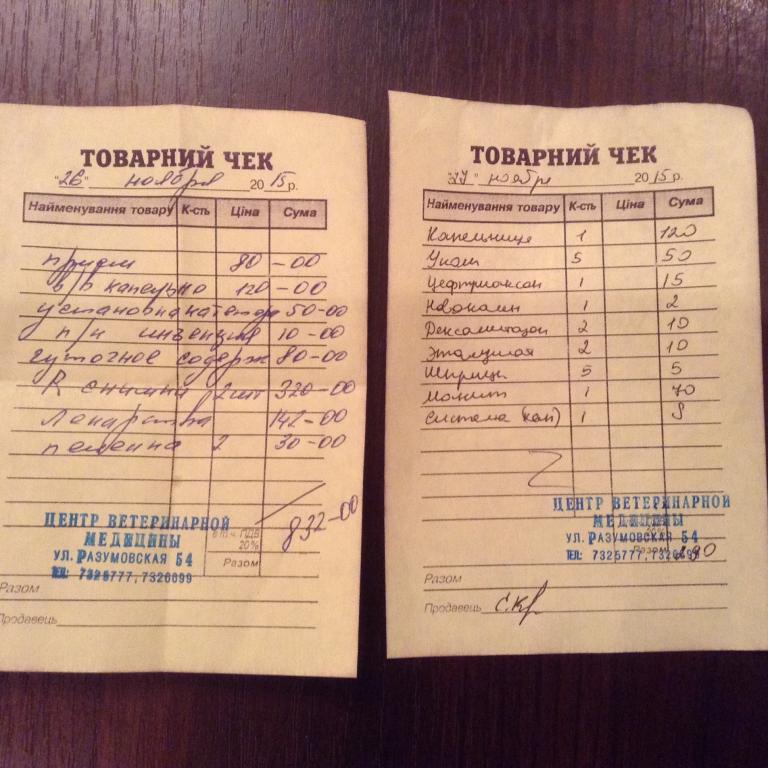 ТОВАРНИЙ ЧЕК
"26" ноября 2015 р.
Найменування товару К-сть Ціна Сума
прием 80-00
в/в капельно 120-00
установка катетера 50-00
п/к инъекция 10-00
суточное содерж 80-00
R снимки 2шт 320-00
Лекарства 142-00
пеленка 2 30-00
832-00
в т.ч. ПДВ 20%
Разом
ЦЕНТР ВЕТЕРИНАРНОЙ
МЕДИЦИНЫ
УЛ. РАЗУМОВСКАЯ 54
ТЕЛ: 7325777, 7326699
Разом
Продавець
ТОВАРНИЙ ЧЕК
"27" ноября 2015 р.
Найменування товару К-сть Ціна Сума
Капельница 1 120
Укол 5 50
Цефтриаксон 1 15
Новокаин 1 2
Дексаметазон 2 10
Этамзилат 2 10
Шприцы 5 5
1 70
Система (кап) 1 8
ЦЕНТР ВЕТЕРИНАРНОЙ
МЕДИЦИНЫ
УЛ. РАЗУМОВСКАЯ 54
ТЕЛ: 7325777, 7326699
Разом 290
Разом
Продавець